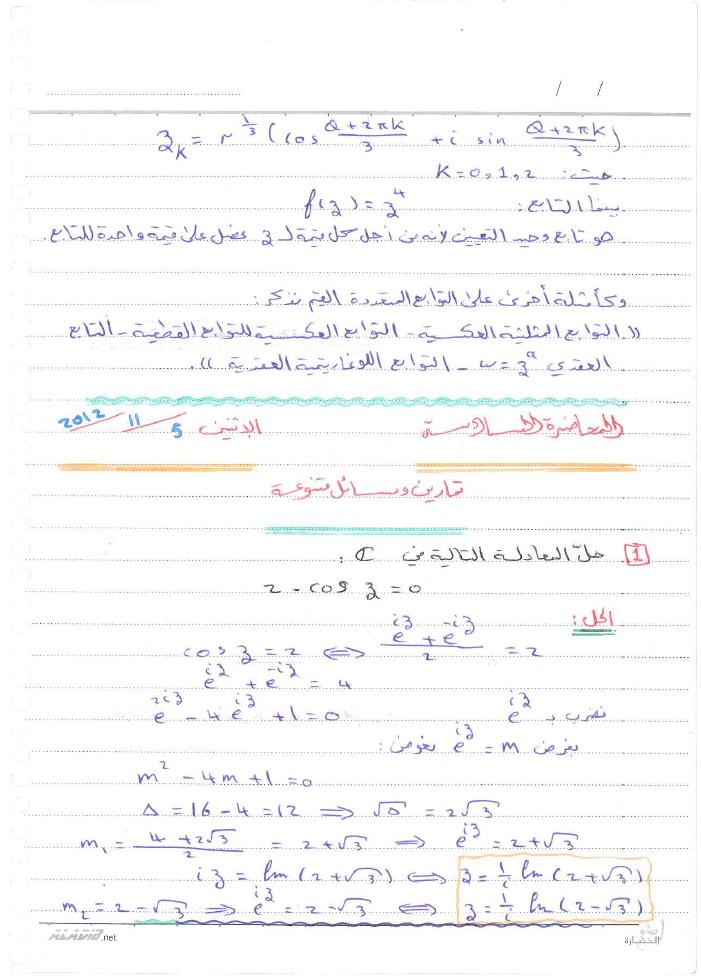 / /
z_K = r^{1/3} (cos (Q+2πK)/3 + i sin (Q+2πK)/3)
حيث: K=0,1,2
بينما التابع: f(z)=z^4
هو تابع وحيد التعيين لأنه من أجل كل قيمة لـ z نحصل على قيمة واحدة للتابع.
وكأمثلة أخرى على التوابع المتعددة القيم نذكر:
((التوابع المثلثية العكسية - التوابع العكسية للتوابع القطعية - التابع
العقدي w=z^a - التوابع اللوغاريتمية العقدية )).
المحاضرة السادسة الإثنين 5/11/2012
تمارين ومسائل متنوعة
1 حلّ المعادلة التالية في C:
2 - cos z = 0
الحل:
cos z = 2 ⟺ (e^{iz} + e^{-iz})/2 = 2
e^{iz} + e^{-iz} = 4
نضرب بـ e^{iz} e^{2iz} - 4e^{iz} + 1 = 0
بفرض e^{iz} = m نعوض:
m^2 - 4m + 1 = 0
Δ = 16 - 4 = 12 ⟹ √Δ = 2√3
m_1 = (4+2√3)/2 = 2+√3 ⟹ e^{iz} = 2+√3
iz = ln(2+√3) ⟺ z = 1/i ln(2+√3)
m_2 = 2-√3 ⟹ e^{iz} = 2-√3 ⟺ z = 1/i ln(2-√3)
ALAVIO.net